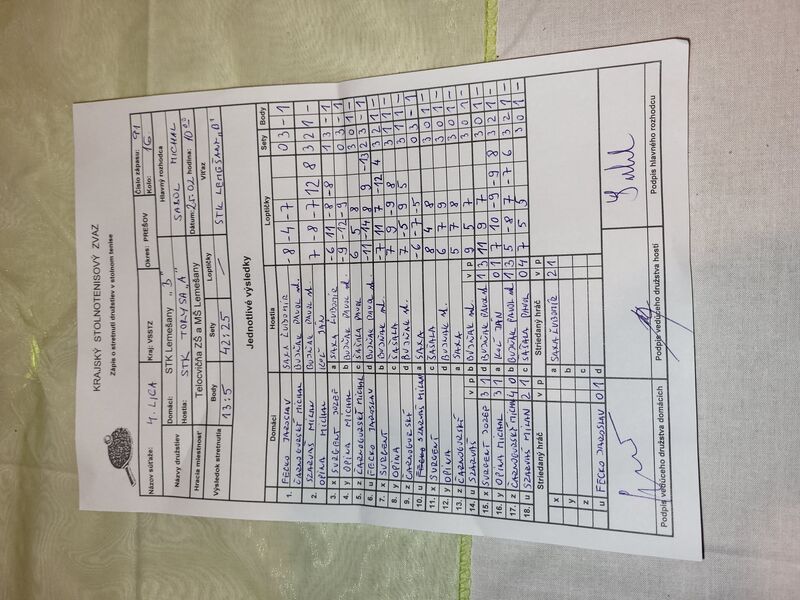 KRAJSKÝ STOLNOTENISOVÝ ZVAZ
Zápis o stretnutí družstiev v stolnom tenise
Názov súťaže: 4. LIGA Kraj: VSSTZ Okres: PREŠOV Číslo zápasu: 91
Kolo: 16
Názvy družstiev Domáci: STK Lemešany "B" Hlavný rozhodca
Hostia: STK TORYSA "A" SABOL MICHAL
Hracia miestnosť Telocvičňa ZŠ a MŠ Lemešany Dátum: 25.02 hodina: 10 00
Výsledok stretnutia Body Sety Loptičky Víťaz
13:5 42:25 STK LEMEŠANY "B"
Jednotlivé výsledky
Domáci Hostia Loptičky Sety Body
1. FECKO JAROSLAV SAXA ĽUBOMÍR 8 -4 -7 0 3 - 1
ČARNOGURSKÝ MICHAL BUJŇÁK PAVOL st.
2. SZARVAS MILAN BUJŇÁK PAVOL ml. 7 -8 -7 12 8 3 2 1 -
OPINA MICHAL KOČ JÁN
3. x SURGENT JOZEF a SAXA ĽUBOMÍR -6 11 -8 -8 1 3 - 1
4. y OPINA MICHAL b BUJŇÁK PAVOL -9 -12 -9 0 3 - 1
5. z ČARNOGURSKÝ MICHAL c SAŠALA PAVOL 6 5 8 3 0 1 -
6. u FECKO JAROSLAV d BUJŇÁK PAVOL -11 -14 8 9 -13 2 3 - 1
7. x SURGENT b BUJŇÁK 7 -11 7 -12 4 3 2 1 -
8. y OPINA c SAŠALA 7 9 -9 8 3 1 1 -
9. z ČARNOGURSKÝ d BUJŇÁK 7 -5 9 5 3 1 1 -
10. u SZARVAS MILAN a SAXA -6 -7 -5 0 3 - 1
11. x SURGENT c SAŠALA 8 4 8 3 0 1 -
12. y OPINA d BUJŇÁK 6 7 9 3 0 1 -
13. z ČARNOGURSKÝ a SAXA 5 7 8 3 0 1 -
14. u SZARVAS v p b BUJŇÁK v p 9 5 7 3 0 1 -
15. x SURGENT JOZEF 3 1 d BUJŇÁK PAVOL 1 3 11 9 7 3 0 1 -
16. y OPINA MICHAL 3 1 a KOČ JÁN 0 1 7 10 -9 -9 8 3 2 1 -
17. z ČARNOGURSKÝ MICHAL 4 0 b BUJŇÁK PAVOL 1 3 5 -8 7 -7 6 3 2 1 -
18. u SZARVAS MILAN 2 1 c SAŠALA PAVOL 0 4 7 5 5 3 0 1 -
Striedaný hráč v p Striedaný hráč v p
x a SAXA ĽUBOMÍR 2 1
y b
z c
u FECKO JAROSLAV 0 1 d
Podpis vedúceho družstva domácich Podpis vedúceho družstva hostí Podpis hlavného rozhodcu